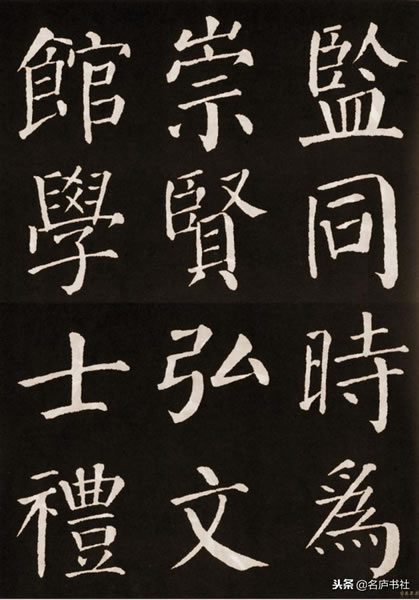 監同時爲
崇賢弘文
館學士禮
头条 @名庐书社